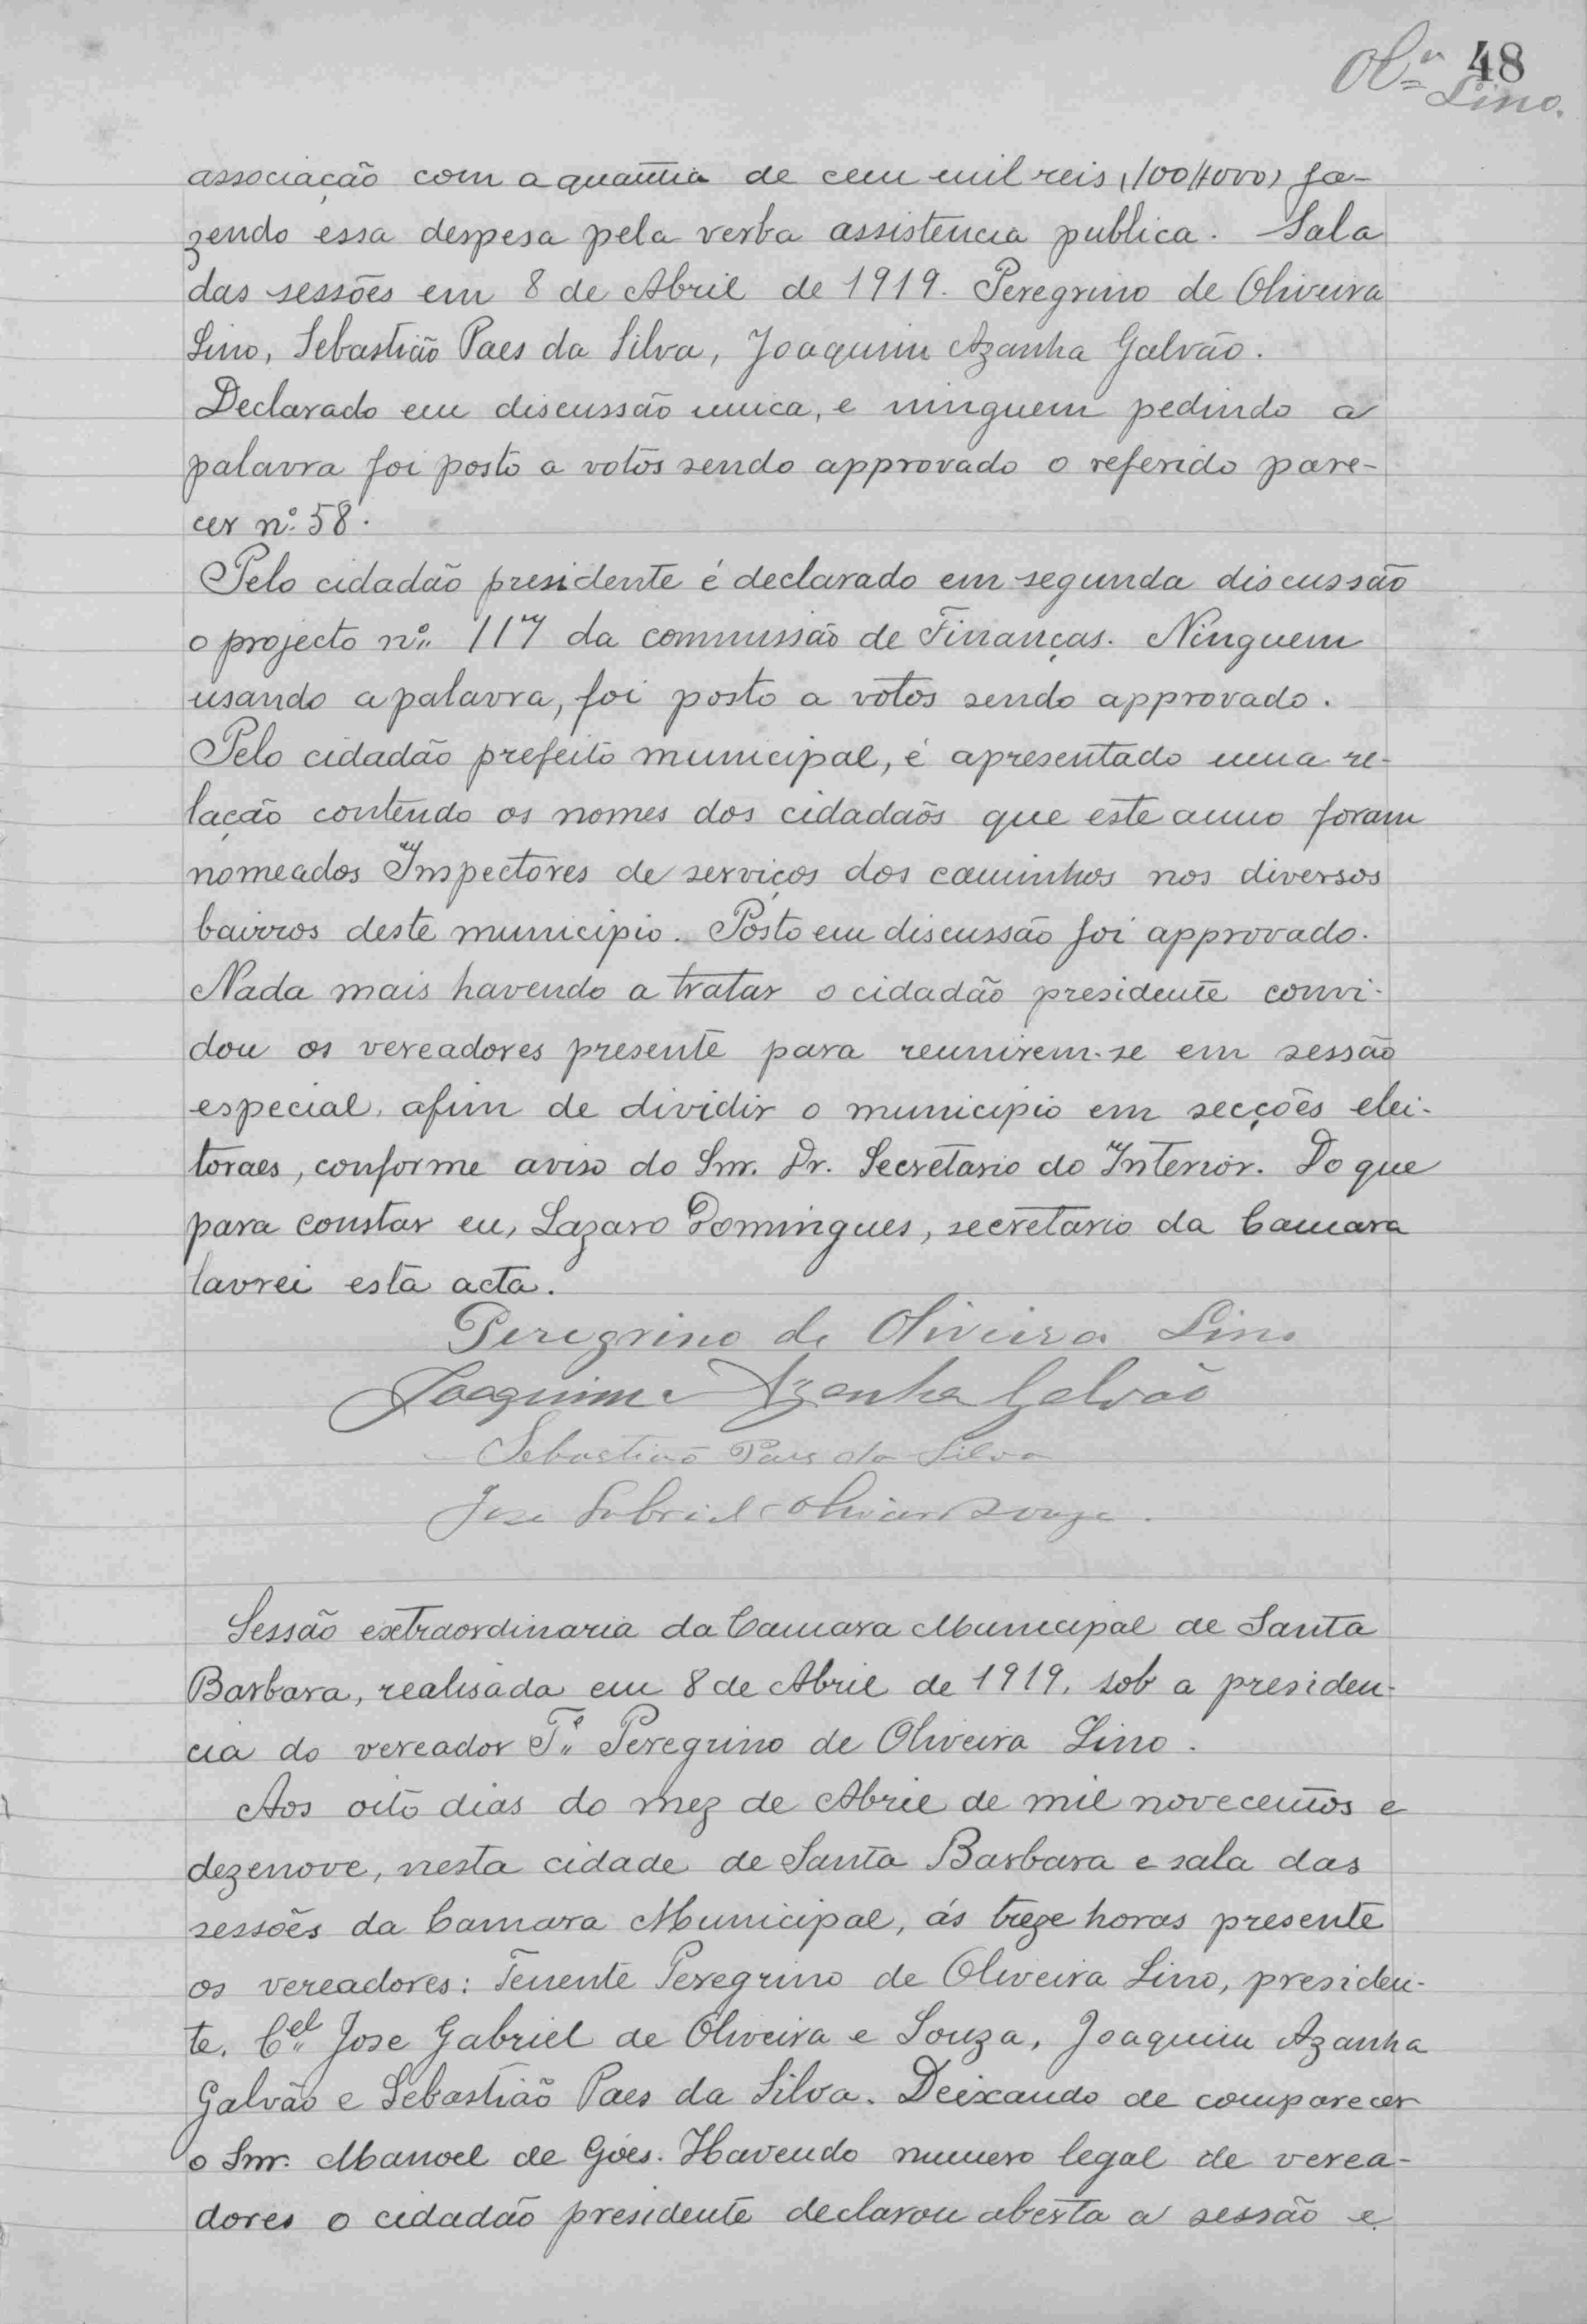 48
Olª Lino.
associação com a quantia de cem mil reis, (100$000) fa-
zendo essa despesa pela verba assistencia publica. Sala
das sessões em 8 de Abril de 1919. Peregrino de Oliveira
Lino, Sebastião Paes da Silva, Joaquim Azanha Galvão.
Declarado em discussão unica, e ninguem pedindo a
palavra foi posto a votos sendo approvado o referido pare-
cer nº 58.
Pelo cidadão presidente é declarado em segunda discussão
o projecto nº 117 da commissão de Finanças. Ninguem
usando a palavra, foi posto a votos sendo approvado.
Pelo cidadão prefeito municipal, é apresentado uma re-
lação contendo os nomes dos cidadaõs que este anno foram
nomeados Inspectores de serviços dos caminhos nos diversos
bairros deste municipio. Posto em discussão foi approvado.
Nada mais havendo a tratar o cidadão presidente convi-
dou os vereadores presente para reunirem-se em sessão
especial, afim de dividir o municipio em secções elei-
toraes, conforme aviso do Snr. Dr. Secretario do Interior. Do que
para constar eu, Lazaro Domingues, secretario da Camara
lavrei esta acta.
Peregrino de Oliveira Lino
Joaquim Azanha Galvão
Sebastião Paes da Silva
Jose Gabriel Oliveira Souza.
Sessão extraordinaria da Camara Municipal de Santa
Barbara, realisada em 8 de Abril de 1919, sob a presiden-
cia do vereador Tᵉ Peregrino de Oliveira Lino.
Aos oito dias do mez de Abril de mil novecentos e
dezenove, nesta cidade de Santa Barbara e sala das
sessões da Camara Municipal, ás treze horas presente
os vereadores: Tenente Peregrino de Oliveira Lino, presiden-
te, Cel Jose Gabriel de Oliveira e Souza, Joaquim Azanha
Galvão e Sebastião Paes da Silva. Deixando de comparecer
o Snr. Manoel de Góes. Havendo numero legal de verea-
dores o cidadão presidente declarou aberta a sessão e